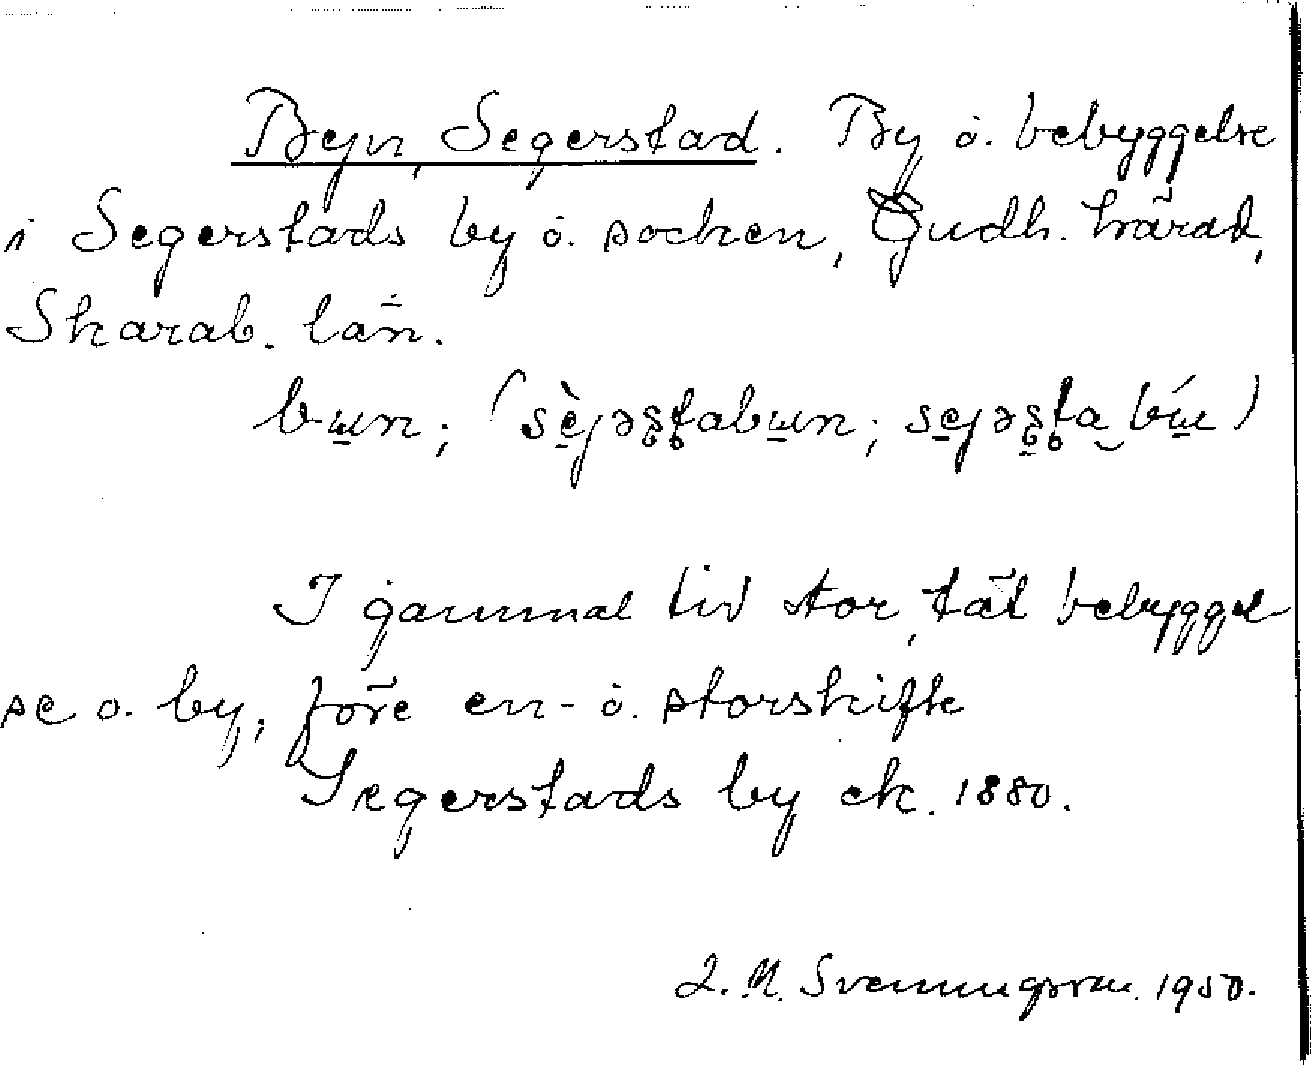 Byn, Segerstad. By o. bebyggelse
i Segerstads by o. socken, Gudh. härad,
Skarab. län.
bɯn; (sèjəʂʈabɯn; sejəʂʈa‿bɯ́)
I gammal tid stor, tät bebyggel-
se o. by, före en- o. storskifte
Segerstads by ck. 1880.
Svenningsson 1950.